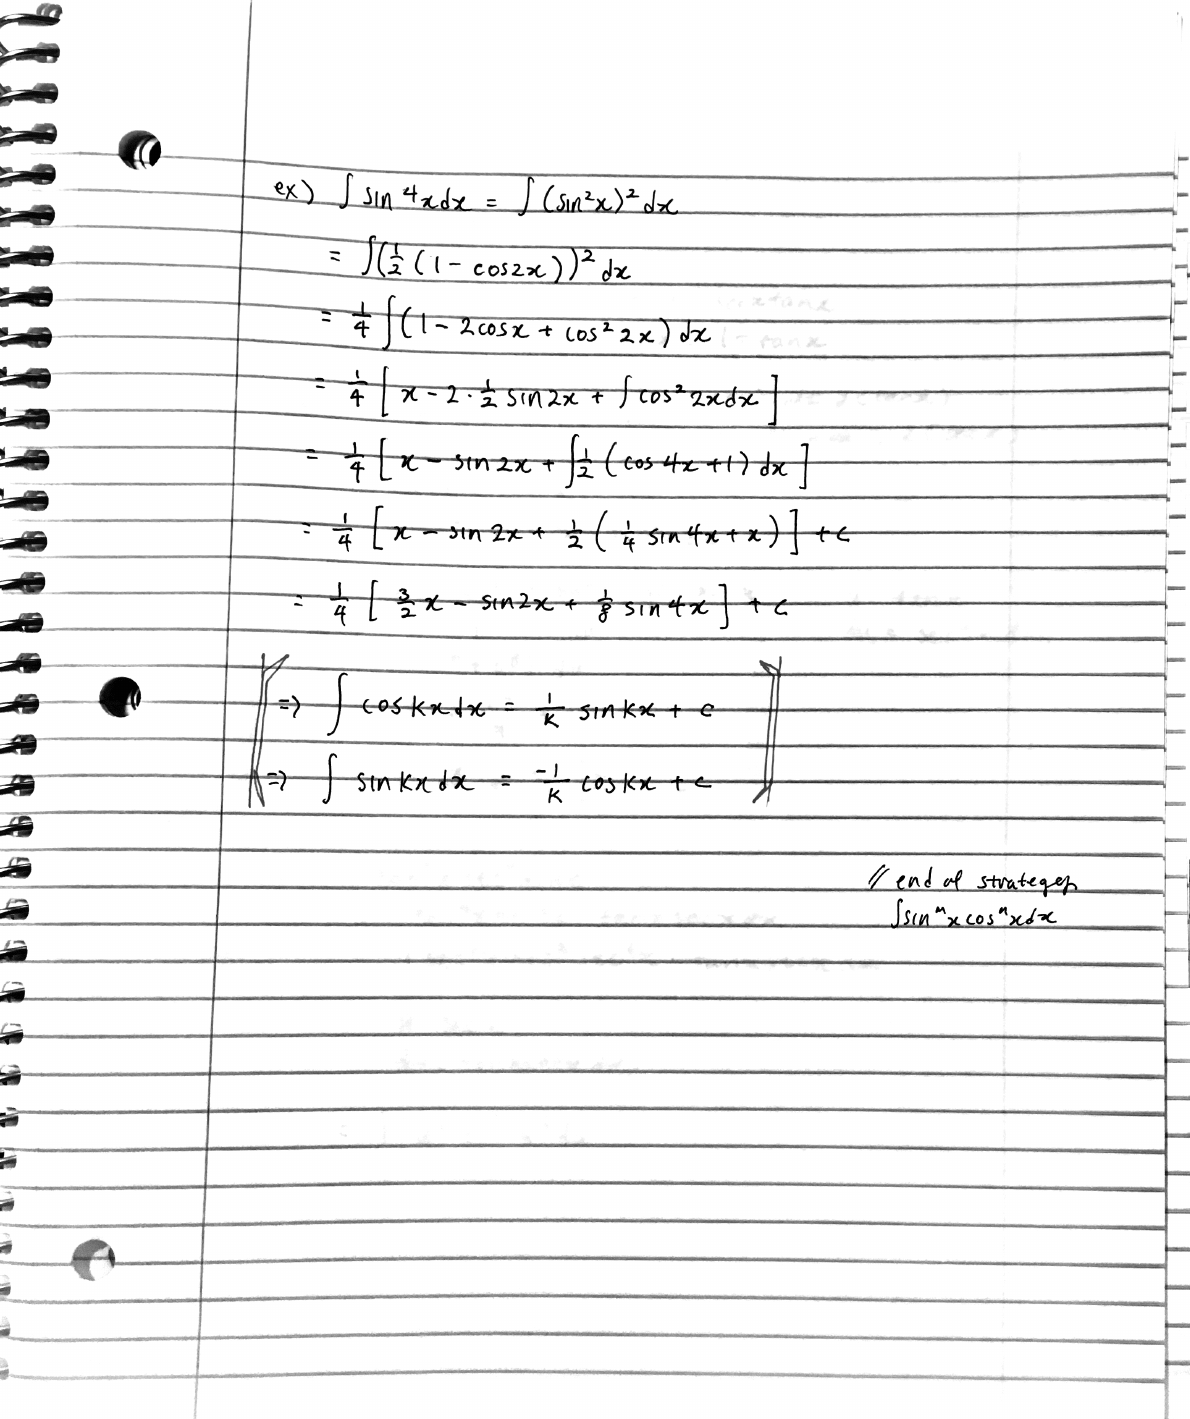 ex) ∫ sin ⁴xdx = ∫ (sin²x)² dx
= ∫(½ (1 - cos2x))² dx
= ¼ ∫(1 - 2cosx + cos² 2x) dx
= ¼ [ x - 2 · ½ sin2x + ∫ cos² 2xdx ]
= ¼ [ x - sin 2x + ∫½ (cos 4x +1) dx ]
= ¼ [ x - sin 2x + ½ ( ¼ sin 4x + x ) ] + c
= ¼ [ 3/2 x - sin2x + ⅛ sin 4x ] + c
=> ∫ cos kx dx = 1/k sin kx + c
=> ∫ sin kx dx = -1/k cos kx + c
// end of
∫sinᵐx cosⁿxdx